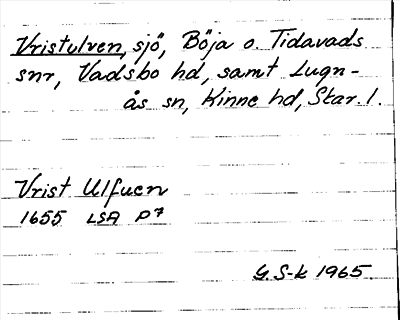 Vristulven, sjö, Böja o. Tidavads
snr, Vadsbo hd, samt Lugn-
ås sn, Kinne hd, Skar. l.
Vrist Ulfuen
1655 LSA P7
G. S-k 1965